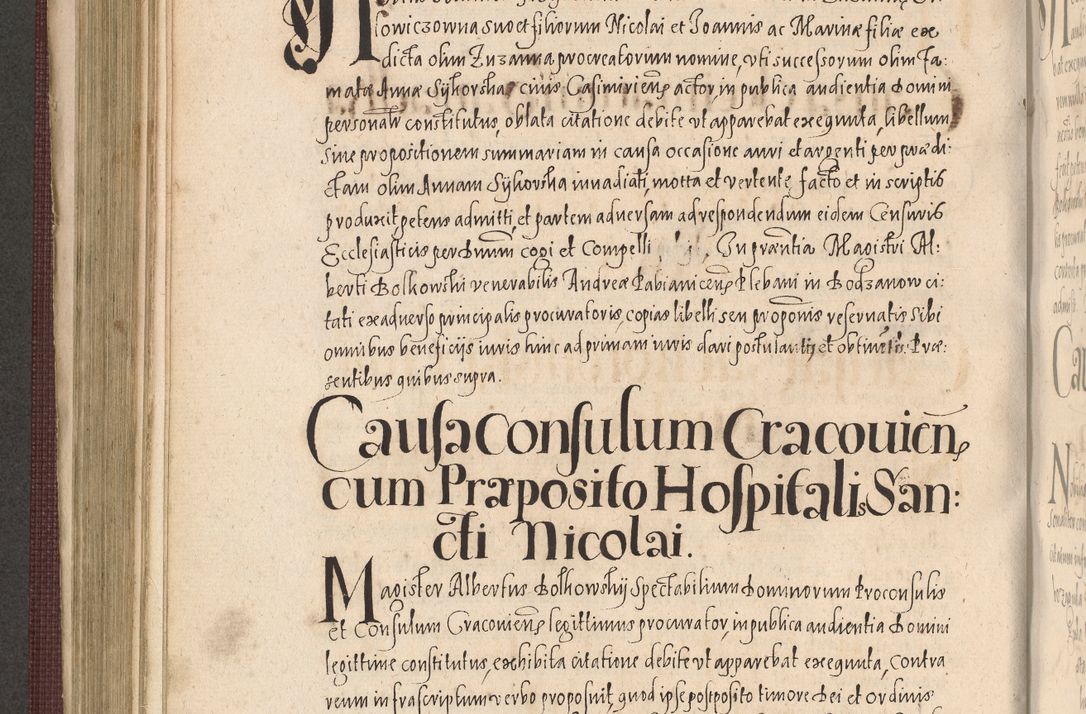 lowiczowna suo et filiorum Nicolai et Joannis ac Marinæ filiæ ex
dicta olim Zuzanna procreatorum nomine, vti successorum olim Fa:
matæ Annæ Sykorska civis Casimirien̄s actor, in publica audientia Domini
personalr̄ constitutus, oblata citatione debite vt apparebat exequuta, libellum
sive propositionem summariam in causa occasione auri et argenti per prædi:
ctam olim Annam Sykorska invadiati, motta et vertente, facto et in scriptis
produxit petens admitti, et partem adversam ad respondendum eidem Censuris
Ecclesiasticis per Dnum cogi et Compelli, In præntia Magistri Al:
berti Bolkowski venerabilis Andreæ Pabianicen̄s Plebani in Bodzanow ci:
tati ex adverso principalis procuratoris, copias libelli seu propōnis reservatis sibi
omnibus beneficijs iuris hinc ad primam iuris dari postulantis et obtinen̄tis. Præ:
sentibus quibus supra.
Causa Consulum Cracouien̄s
cum Præposito Hospitalis San:
cti Nicolai.
Magister Albertus Bolkowskij Spectabilium Dominorum Proconsulis
et Consulum Cracouien̄s legittimus procurator, in publica audientia Domini
legittime constitutus, exhibita citatione debite vt apparebat exequuta, Contra
reum infrascriptum verbo proposuit, quod ipse postposito timore Dei et Ordinis